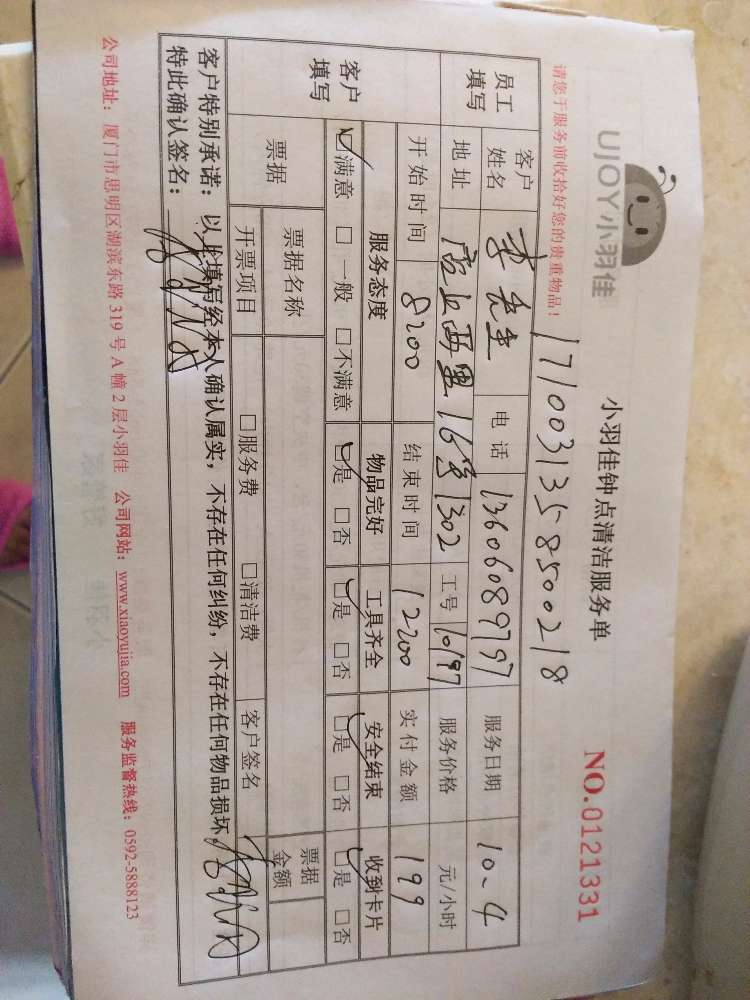 UJOY小羽佳
小羽佳钟点清洁服务单
NO.0121331
请您于服务前收拾好您的贵重物品!
171003135850218
员工填写
客户姓名 李先生 电话 13606089797 服务日期 10-4
地址 西里16号1302 工号 10197 服务价格 元/小时
开始时间 8:00 结束时间 12:00 实付金额 199
客户填写
服务态度 物品完好 工具齐全 安全结束 收到卡片
☑满意 □一般 □不满意 ☑是 □否 ☑是 □否 ☑是 □否 ☑是 □否
票据 票据名称 票据金额
开票项目 □服务费 □清洁费 客户签名
客户特别承诺:以上填写经本人确认属实,不存在任何纠纷,不存在任何物品损坏,
特此确认签名:
公司地址:厦门市思明区湖滨东路319号A幢2层小羽佳 公司网站:www.xiaoyujia.com 服务监督热线:0592-5888123